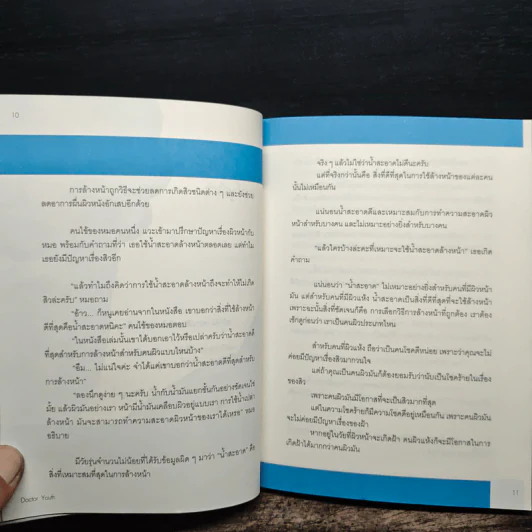 10
การล้างหน้าถูกวิธีจะช่วยลดการเกิดสิวชนิดต่าง ๆ และยังช่วย
ลดอาการผื่นผิวหนังอักเสบอีกด้วย
คนไข้ของหมอคนหนึ่ง แวะเข้ามาปรึกษาปัญหาเรื่องผิวหน้ากับ
หมอ พร้อมกับคำถามที่ว่า เธอใช้น้ำสะอาดล้างหน้าตลอดเลย แต่ทำไม
เธอยังมีปัญหาเรื่องสิวอีก
"แล้วทำไมถึงคิดว่าการใช้น้ำสะอาดล้างหน้าถึงจะทำให้ไม่เกิด
สิวล่ะครับ" หมอถาม
"อ้าว... ก็หนูเคยอ่านจากในหนังสือ เขาบอกว่าสิ่งที่ใช้ล้างหน้า
ดีที่สุดคือน้ำสะอาดหนิคะ" คนไข้ของหมอตอบ
"ในหนังสือเล่มนั้นเขาได้บอกเอาไว้หรือเปล่าครับว่าน้ำสะอาดดี
ที่สุดสำหรับการล้างหน้าสำหรับคนผิวแบบไหนบ้าง"
"อืม... ไม่แน่ใจค่ะ จำได้แค่เขาบอกว่าน้ำสะอาดดีที่สุดสำหรับ
การล้างหน้า"
"ลองนึกดูง่าย ๆ นะครับ น้ำกับน้ำมันแยกชั้นกันอย่างชัดเจนใช่
มั้ย แล้วผิวมันอย่างเรา หน้ามีน้ำมันเคลือบผิวอยู่แบบเรา การใช้น้ำเปล่า
ล้างหน้า มันจะสามารถทำความสะอาดผิวหน้าของเราได้เหรอ" หมอ
อธิบาย
มีวัยรุ่นจำนวนไม่น้อยที่ได้รับข้อมูลผิด ๆ มาว่า "น้ำสะอาด" คือ
สิ่งที่เหมาะสมที่สุดในการล้างหน้า
Doctor Youth
จริง ๆ แล้วไม่ใช่ว่าน้ำสะอาดไม่ดีนะครับ
แต่ที่จริงกว่านั้นคือ สิ่งที่ดีที่สุดในการใช้ล้างหน้าของแต่ละคน
นั้นไม่เหมือนกัน
แน่นอนน้ำสะอาดดีและเหมาะสมกับการทำความสะอาดผิว
หน้าสำหรับบางคน และไม่เหมาะอย่างยิ่งสำหรับบางคน
"แล้วใครบ้างล่ะคะที่เหมาะจะใช้น้ำสะอาดล้างหน้า" เธอเกิด
คำถาม
แน่นอนว่า "น้ำสะอาด" ไม่เหมาะอย่างยิ่งสำหรับคนที่มีผิวหน้า
มัน แต่สำหรับคนที่มีผิวแห้ง น้ำสะอาดเป็นสิ่งที่ดีที่สุดที่จะใช้ล้างหน้า
เพราะฉะนั้นสิ่งที่ชัดเจนก็คือ การเลือกวิธีการล้างหน้าที่ถูกต้อง เราต้อง
เช็กดูก่อนว่า เราเป็นคนผิวประเภทไหน
สำหรับคนที่ผิวแห้ง ถือว่าเป็นคนโชคดีหน่อย เพราะว่าคุณจะไม่
ค่อยมีปัญหาเรื่องสิวมากวนใจ
แต่ถ้าคุณเป็นคนผิวมันก็ต้องยอมรับว่านับเป็นโชคร้ายในเรื่อง
ของสิว
เพราะคนผิวมันมีโอกาสที่จะเป็นสิวมากที่สุด
แต่ในความโชคร้ายก็มีความโชคดีอยู่เหมือนกัน เพราะคนผิวมัน
จะไม่ค่อยมีปัญหาเรื่องของฝ้า
หากอยู่ในวัยที่ผิวหน้าจะเกิดฝ้า คนผิวแห้งก็จะมีโอกาสในการ
เกิดฝ้าได้มากกว่าคนผิวมัน
11